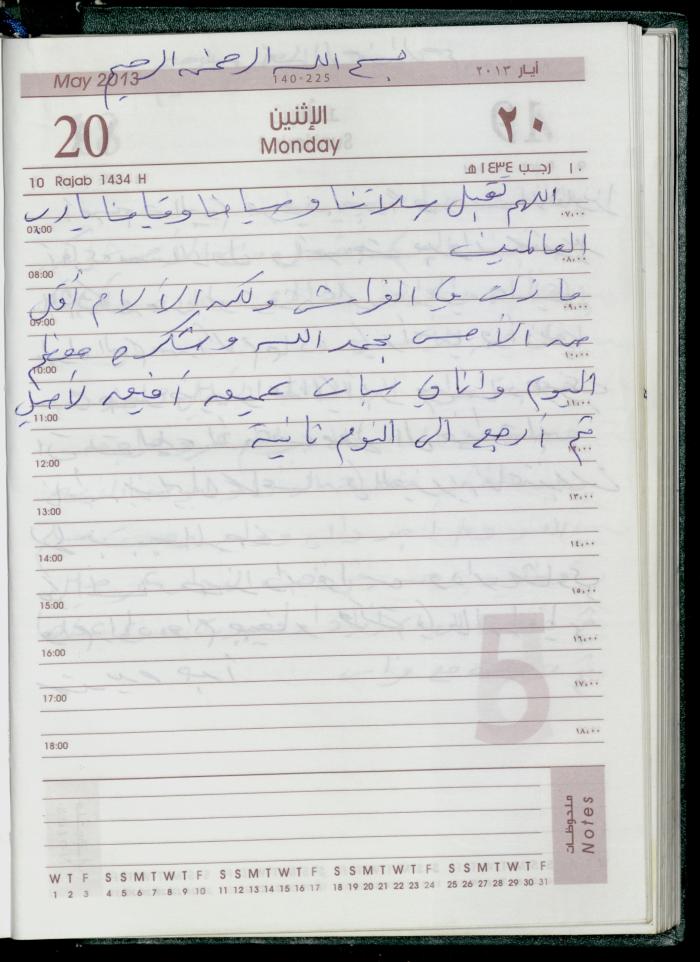 بسم الله الرحمن الرحيم
May 2013
140-225
أيار ٢٠١٣
20
الإثنين
Monday
٢٠
10 Rajab 1434 H
١٠ رجب ١٤٣٤هـ
اللهم تقبل صلاتنا وصيامنا وقيامنا يا رب
07:00 ٠٧،٠٠
العالمين
08:00 ٠٨،٠٠
ما زلت في الفراش ولكن الألام أقل
09:00 ٠٩،٠٠
من الأمس بحمد الله وشكره
10:00 ١٠،٠٠
اليوم وانا في سبات عميق أفيق لأصلي
11:00 ١١،٠٠
ثم أرجع الى النوم ثانية
12:00 ١٢،٠٠
13:00 ١٣،٠٠
14:00 ١٤،٠٠
15:00 ١٥،٠٠
16:00 ١٦،٠٠
17:00 ١٧،٠٠
18:00 ١٨،٠٠
5
ملحوظات
Notes
W T F S S M T W T F S S M T W T F S S M T W T F S S M T W T F
1 2 3 4 5 6 7 8 9 10 11 12 13 14 15 16 17 18 19 20 21 22 23 24 25 26 27 28 29 30 31